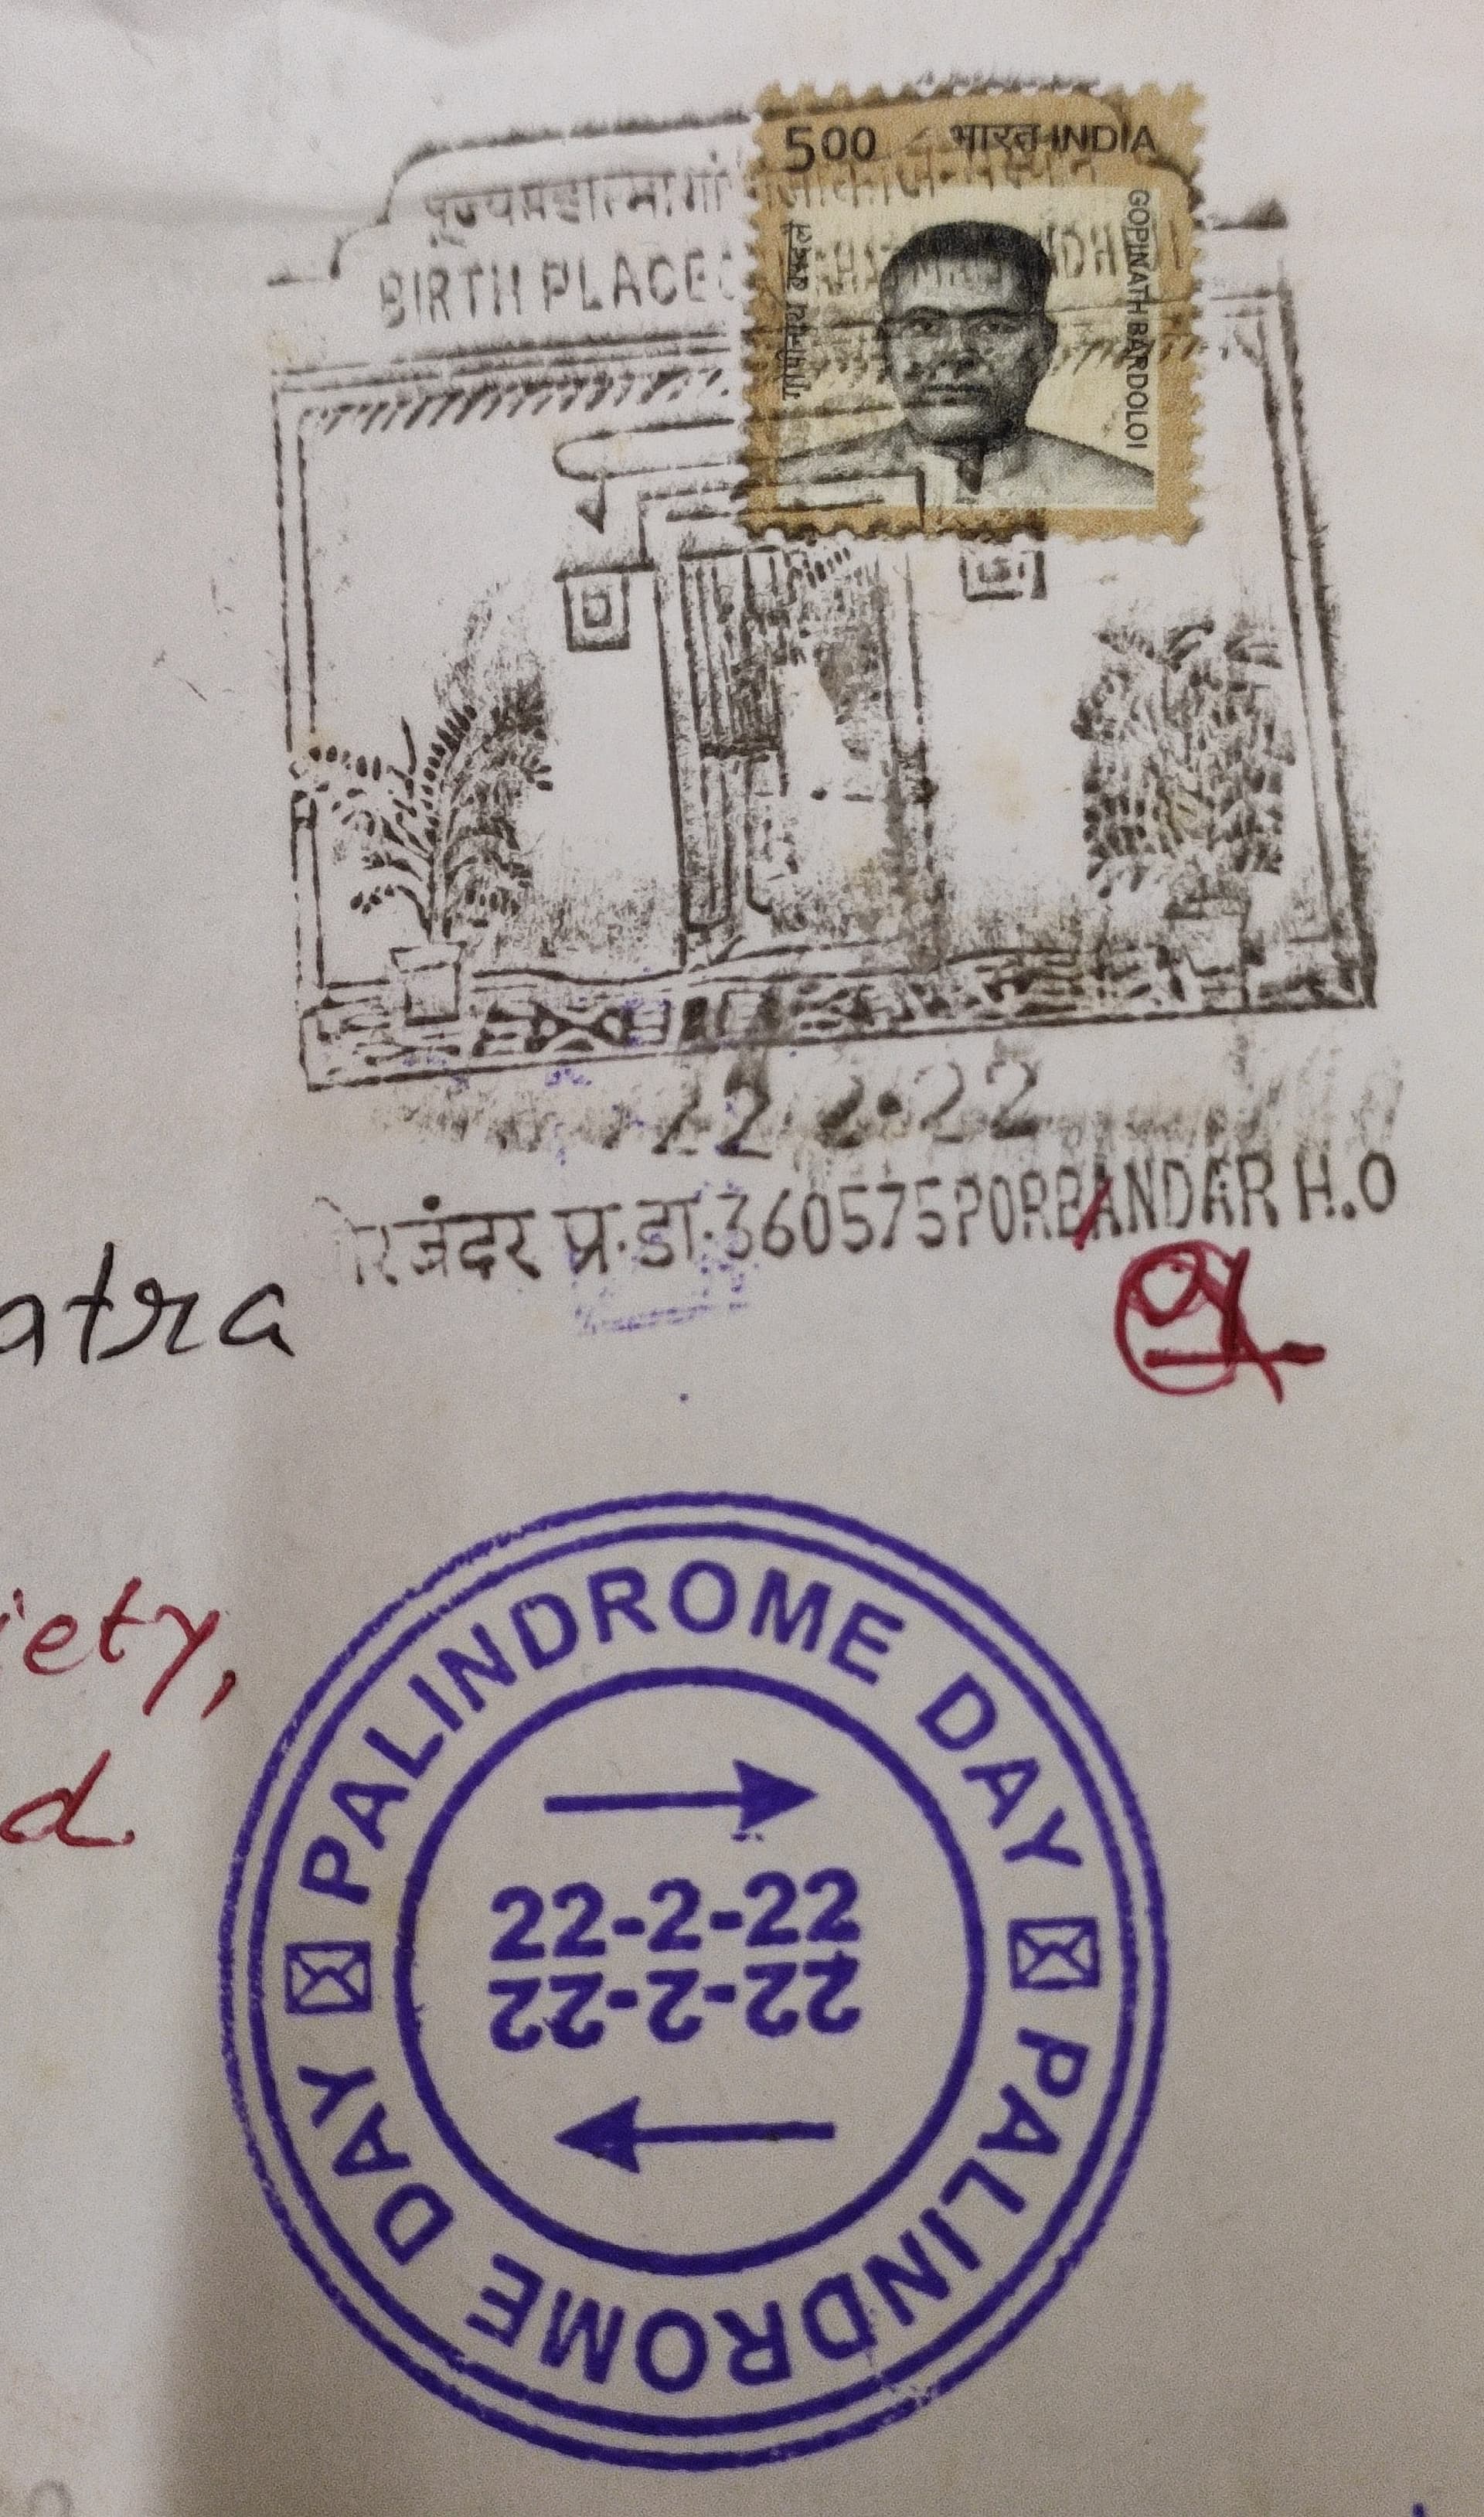 500 भारत INDIA
गोपीनाथ बरदलै
GOPINATH BARDOLOI
पूज्य महात्मा गां
BIRTH PLACE
22 2.22
पोरबंदर प्र.डा.360575 PORBANDAR H.O
atra
iety,
d.
PALINDROME DAY
22-2-22
22-2-22
PALINDROME DAY